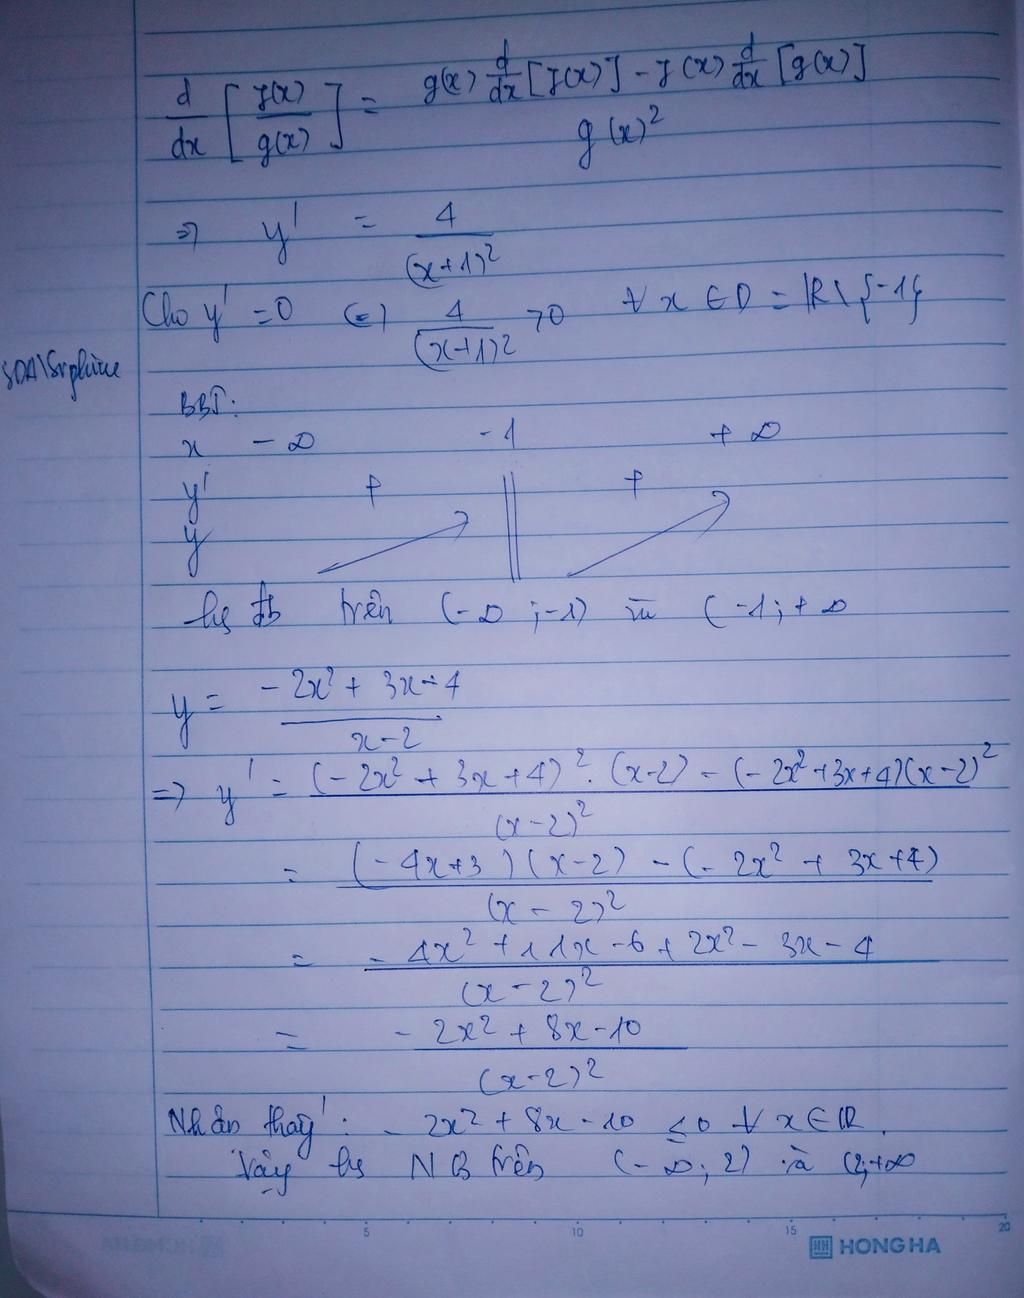 d/dx [f(x)/g(x)] = (g(x) d/dx [f(x)] - f(x) d/dx [g(x)]) / g(x)²
=> y' = 4/(x+1)²
Cho y' = 0 (=) 4/(x+1)² > 0 ∀ x ∈ D = ℝ\{-1}
BBT:
x -∞ -1 +∞
y' + || +
y
hs đb trên (-∞;-1) và (-1;+∞
y = (-2x² + 3x - 4)/(x-2)
=> y' = ((-2x² + 3x + 4)². (x-2) - (-2x² + 3x + 4)(x-2)²)/(x-2)²
= ((-4x+3)(x-2) - (-2x² + 3x + 4))/(x-2)²
= (-4x² + 11x - 6 + 2x² - 3x - 4)/(x-2)²
= (-2x² + 8x - 10)/(x-2)²
Nhận thấy: -2x² + 8x - 10 ≤ 0 ∀ x ∈ ℝ.
Vậy hs NB trên (-∞; 2) và (2;+∞
5 10 15 20
HONG HA